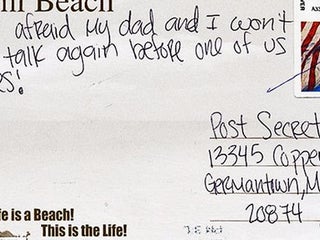 Beach
afreid my dad and I won't
talk again before one of us
es!
Post Secret
13345 Copper
Germantown, M
20874
fe is a Beach!
This is the Life!